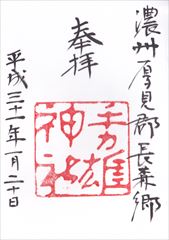 濃州厚見郡長森郷
奉拝
手力雄
神社
平成三十一年一月二十日